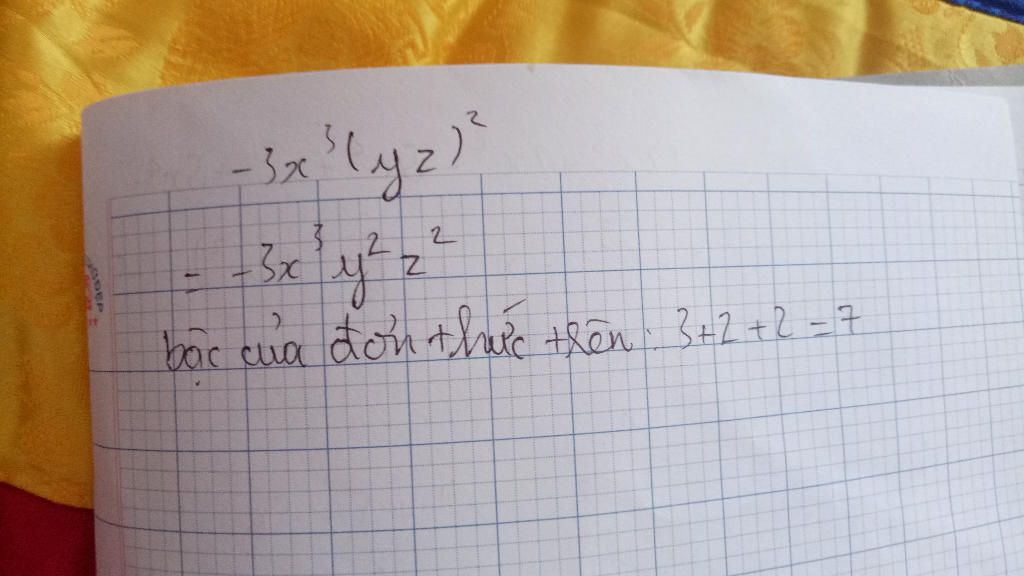 -3x³(yz)²
= -3x³y²z²
bậc của đơn thức trên: 3+2+2=7